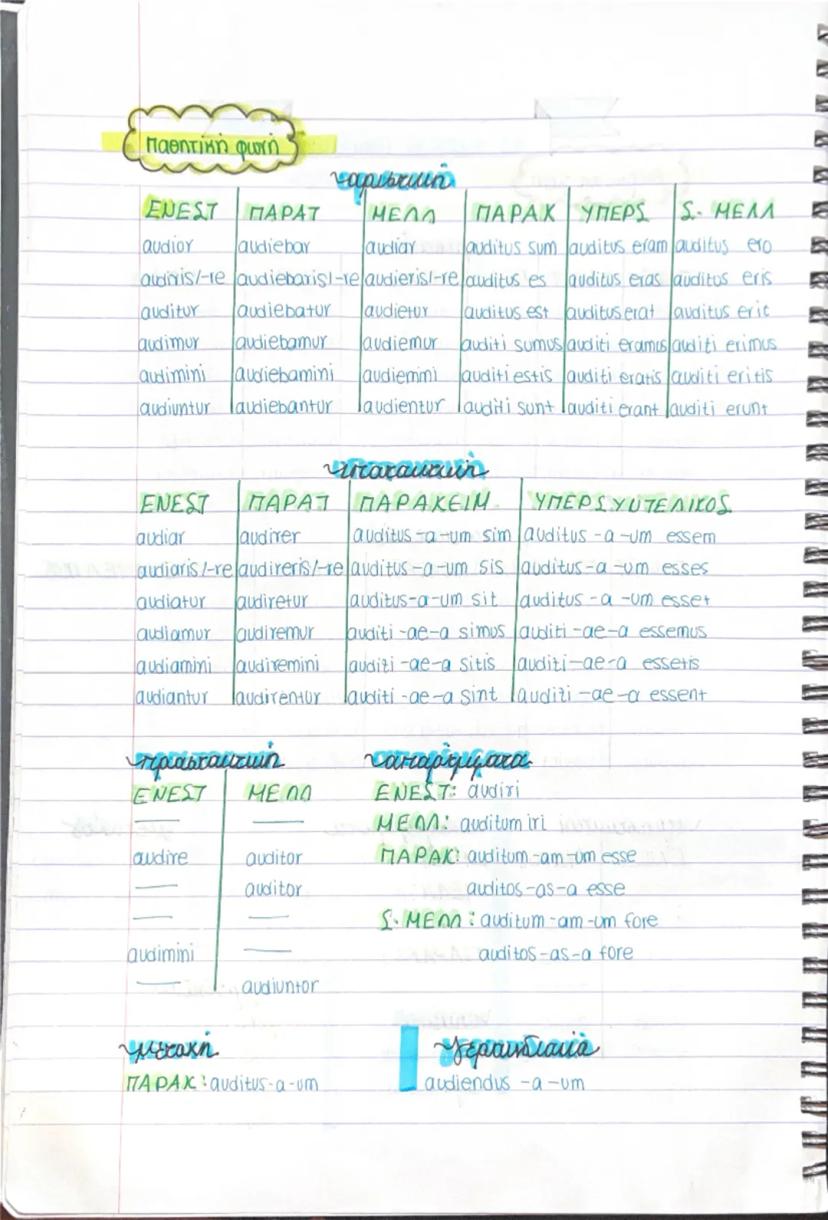 παθητική φωνή
οριστική
ΕΝΕΣΤ ΠΑΡΑΤ ΜΕΛΛ ΠΑΡΑΚ ΥΠΕΡΣ Σ. ΜΕΛΛ
audior audiebar audiar auditus sum auditus eram auditus ero
audiris/-re audiebaris/-re audieris/-re auditus es auditus eras auditus eris
auditur audiebatur audietur auditus est auditus erat auditus erit
audimur audiebamur audiemur auditi sumus auditi eramus auditi erimus
audimini audiebamini audiemini auditi estis auditi eratis auditi eritis
audiuntur audiebantur audientur auditi sunt auditi erant auditi erunt
υποτακτική
ΕΝΕΣΤ ΠΑΡΑΤ ΠΑΡΑΚΕΙΜ. ΥΠΕΡΣΥΝΤΕΛΙΚΟΣ
audiar audirer auditus -a -um sim auditus -a -um essem
audiaris/-re audireris/-re auditus -a -um sis auditus -a -um esses
audiatur audiretur auditus-a-um sit auditus -a -um esset
audiamur audiremur auditi -ae-a simus auditi -ae-a essemus
audiamini audiremini auditi -ae-a sitis auditi-ae-a essetis
audiantur audirentur auditi -ae-a sint auditi -ae-a essent
προστακτική απαρέμφατα
ΕΝΕΣΤ ΜΕΛΛ ΕΝΕΣΤ: audiri
— — ΜΕΛΛ: auditum iri
audire auditor ΠΑΡΑΚ: auditum -am -um esse
— auditor auditos-as-a esse
— — Σ. ΜΕΛΛ: auditum-am-um fore
audimini — auditos-as-a fore
— audiuntor
μετοχή γερουνδιακό
ΠΑΡΑΚ: auditus-a-um audiendus -a -um